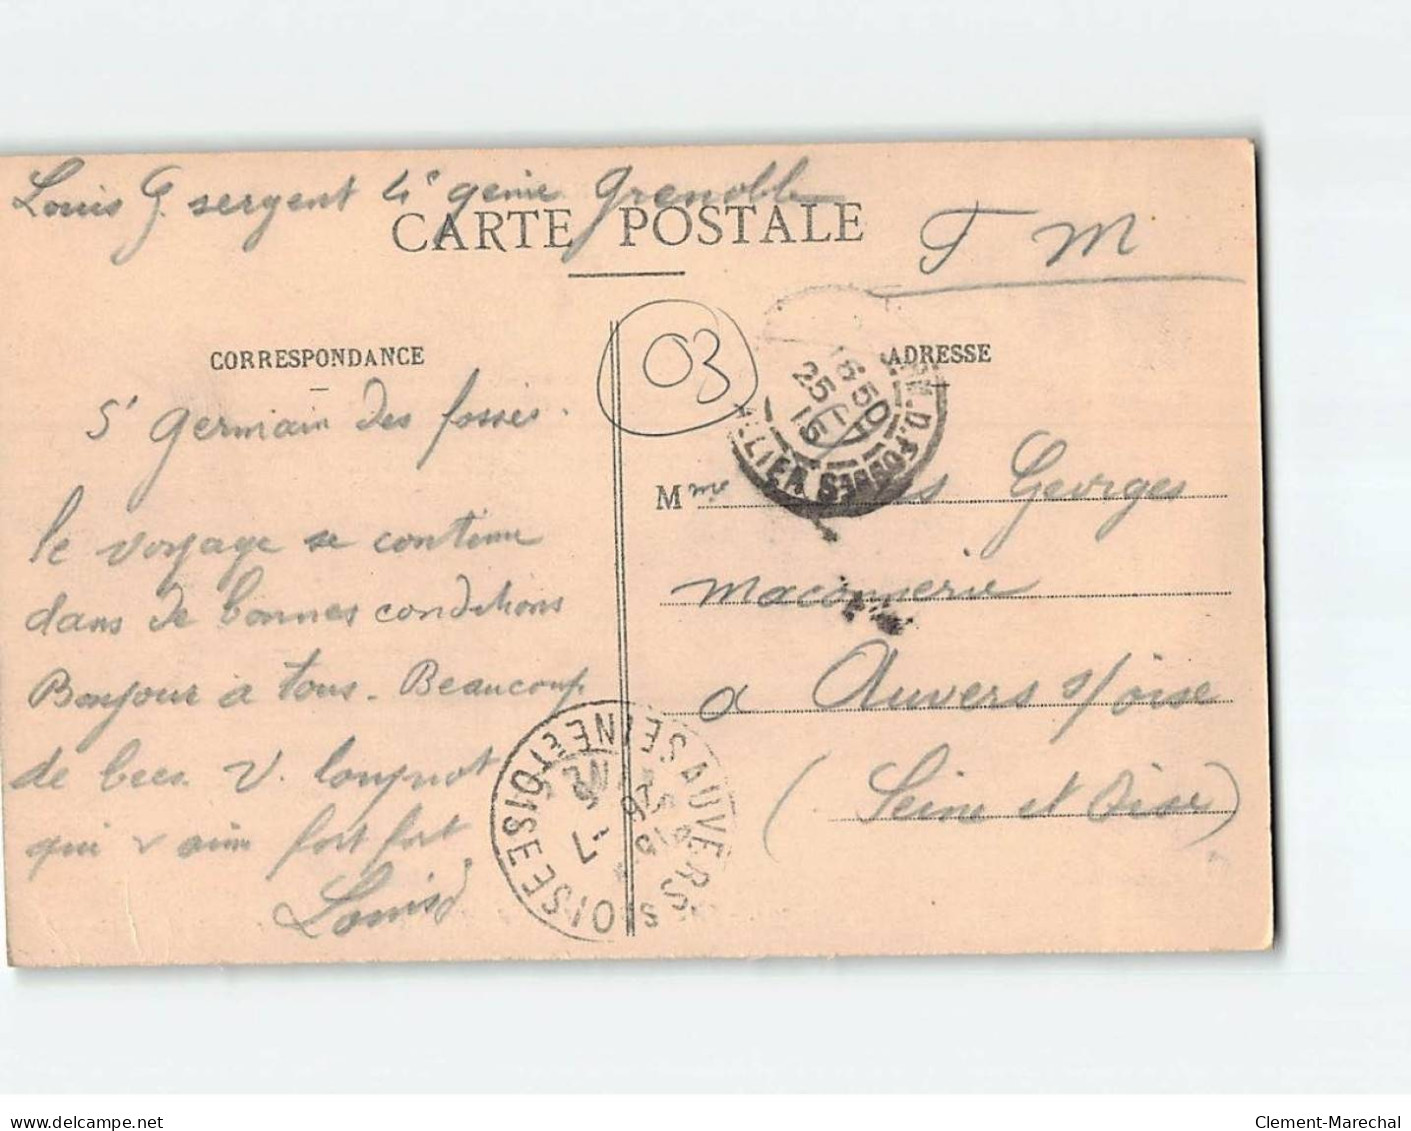 Louis G. sergent 4e génie Grenoble
CARTE POSTALE
F M
03
CORRESPONDANCE
ADRESSE
St Germain des fossés.
le voyage se continue
dans de bonnes conditions
Bonjour à tous. Beaucoup
de becs. V.
qui v aim fort fort
Louis
ALLIER
25
15
Mme Georges
maconnerie
a Auvers s/oise
(Seine et Oise)
AUVERS S OISE SEINE ET OISE
26 -7
www.delcampe.net
Clement-Marechal